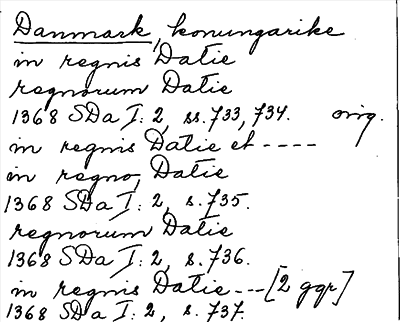 Danmark, konungarike
in regnis Datie
regnorum Datie
1368 SDa I: 2, ss. 733, 734. orig.
in regnis Datie et ----
in regno, Datie
1368 SDa I: 2, s. 735.
regnorum Datie
1368 SDa I: 2, s. 736.
in regnis Datie --- [2 ggr]
1368 SDa I: 2, s. 737.